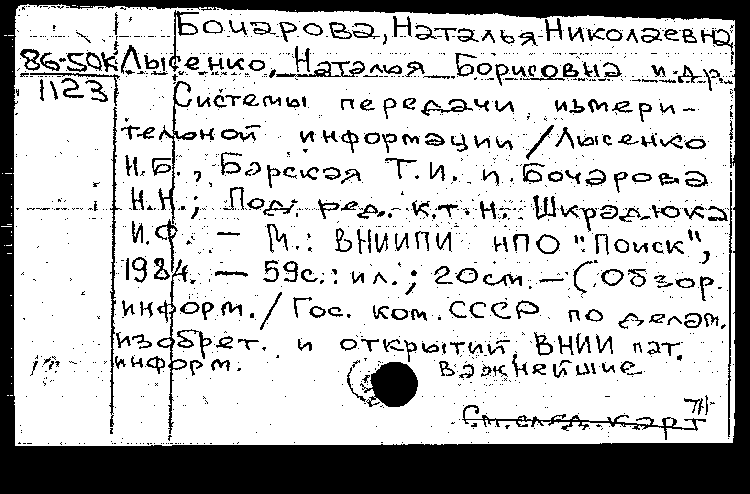 Бочарова, Наталья Николаевна
86-50к Лысенко, Наталья Борисовна и др.
1123 Системы передачи измери-
тельной информации / Лысенко
Н.Б., Барская Т.И. и Бочарова
Н.Н.; Под ред. к.т.н. Шкрадюка
И.Ф. — М.: ВНИИПИ НПО "Поиск",
1984. — 59с.: ил.; 20см. — (Обзор.
информ. / Гос. ком. СССР по делам.
изобрет. и открытий, ВНИИ пат.
информ. Важнейшие
См. след. карт